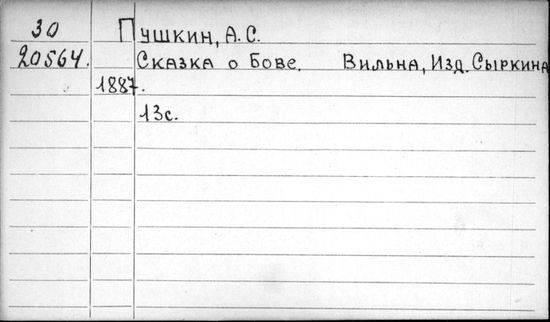 30 Пушкин, А.С.
20564. Сказка о Бове. Вильна, Изд. Сыркина
1887.
13с.